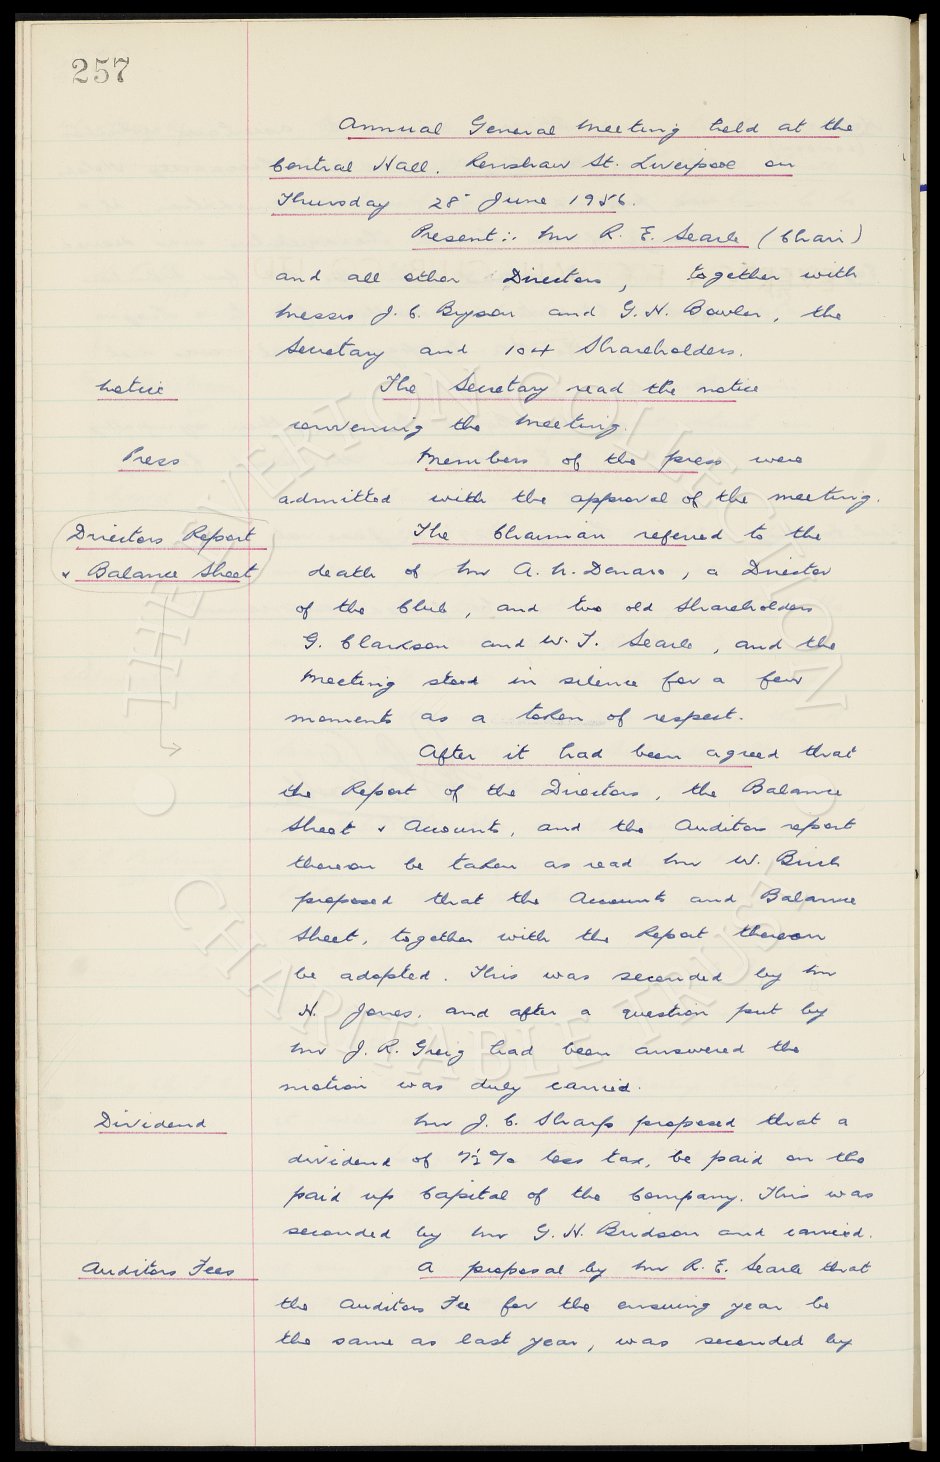 257
Annual General Meeting held at the
Central Hall. Renshaw St. Liverpool on
Thursday 28 June 1956.
Present:- Mr R. E. Searle (Chair)
and all other Directors, together with
Messrs J. C. Bryson and G. H. Bowler, the
Secretary and 104 Shareholders.
Notice
The Secretary read the notice
convening the Meeting.
Press
Members of the press were
admitted with the approval of the meeting.
Directors Report
& Balance Sheet
The Chairman referred to the
death of Mr A. N. Denaro, a Director
of the Club, and two old Shareholders
G. Clarkson and W. T. Searle, and the
Meeting stood in silence for a few
moments as a token of respect.
After it had been agreed that
the Report of the Directors, the Balance
Sheet & Accounts, and the Auditors report
thereon be taken as read Mr W. Birch
proposed that the Accounts and Balance
Sheet, together with the Report thereon
be adopted. This was seconded by Mr
H. Jones, and after a question put by
Mr J. R. Greig had been answered the
motion was duly carried.
Dividend
Mr J. C. Sharp proposed that a
dividend of 7½% less tax, be paid on the
paid up Capital of the Company. This was
seconded by Mr G. H. Bridson and carried.
Auditors Fees
A proposal by Mr R. E. Searle that
the Auditors Fee for the ensuing year be
the same as last year, was seconded by
THE EVERTON COLLECTION
CHARITABLE TRUST